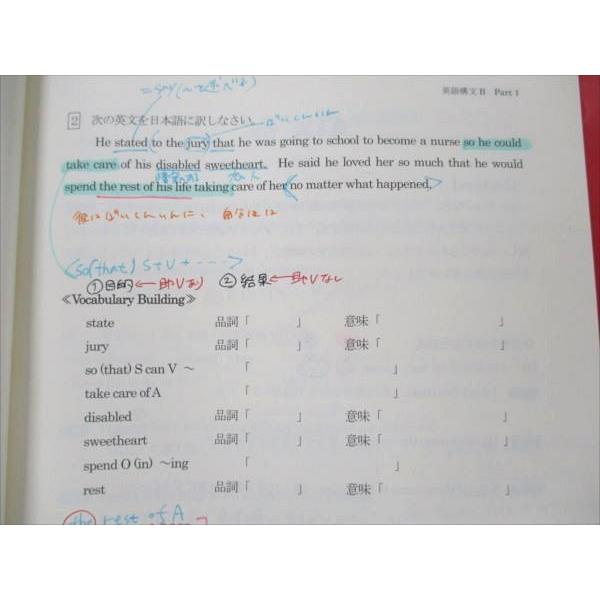 = say (〜を述べる)
英語構文B Part 1
2 次の英文を日本語に訳しなさい。
He stated to the jury that he was going to school to become a nurse so he could
take care of his disabled sweetheart. He said he loved her so much that he would
spend the rest of his life taking care of her no matter what happened.
<so(that) S+V+ ....>
①目的←助Vあり ②結果←助Vなし
≪Vocabulary Building≫
state 品詞「 」 意味「 」
jury 品詞「 」 意味「 」
so (that) S can V ～ 「 」
take care of A 「 」
disabled 品詞「 」 意味「 」
sweetheart 品詞「 」 意味「 」
spend O (in) ～ing 「 」
rest 品詞「 」 意味「 」
the rest of A